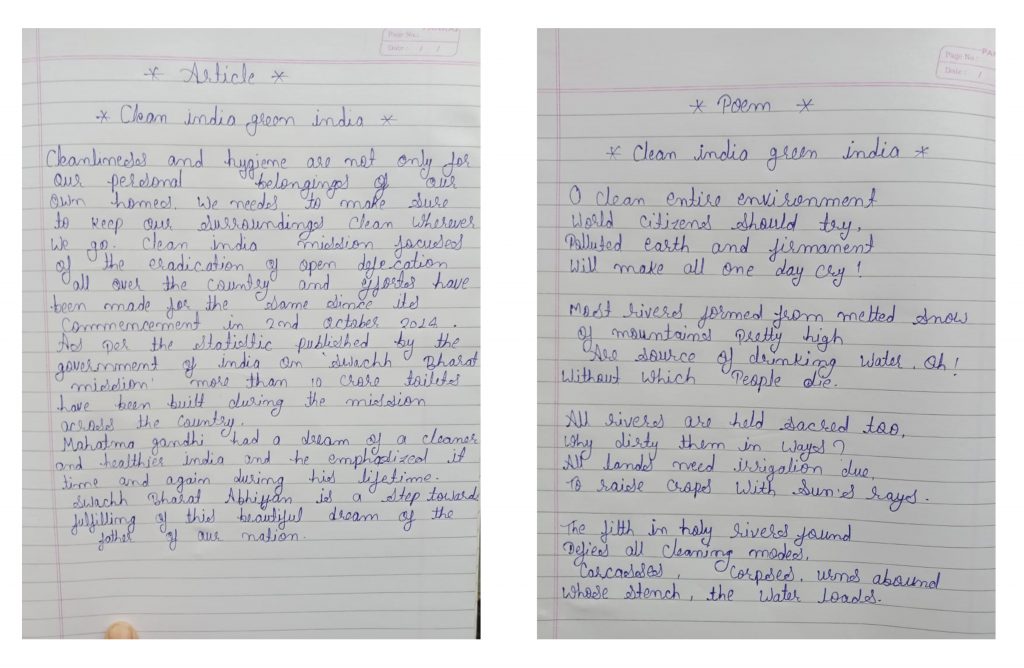 Page No.:
Date: / /
* Article *
* Clean india green india *
Cleanlinesss and hygiene are not only for
our personal belongings of our
own homes. We needs to make sure
to keep our surroundings clean wherever
we go. Clean india mission focuses
of the eradication of open defecation
all over the country and effortes have
been made for the same since its
Commencement in 2nd october 2014.
As per the statistic published by the
government of india on 'swachh Bharat
mission' more than 10 crore toiletes
have been built during the mission
across the country.
Mahatma gandhi had a dream of a cleaner
and healthier india and he emphasized it
time and again during his lifetime.
Swachh Bharat Abhiyan is a step towards
fulfilling of this beautiful dream of the
father of our nation.
Page No.:
Date: /
* Poem *
* Clean india green india *
O clean entire environment
World citizens should try,
Polluted earth and firmament
Will make all one day cry!
Most rivers formed from melted snow
of mountains Pretty high
Are source of drinking water. Oh!
Without which People die.
All rivers are held sacred too,
Why dirty them in ways?
All lands need irrigation due,
To raise crops with Sun's rays.
The filth in holy rivers found
Defies all cleaning modes,
Carcasses, Corpses, urns abound
Whose stench, the water loads.